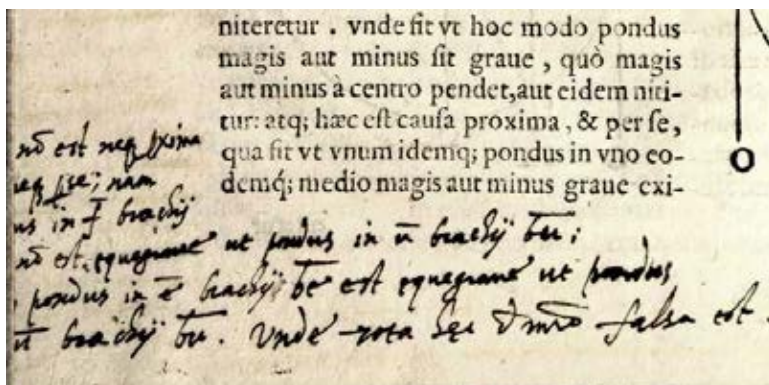 niteretur . vnde fit vt hoc modo pondus
magis aut minus sit graue , quò magis
aut minus à centro pendet, aut eidem niti-
tur: atq; hæc est causa proxima , & per se,
qua fit vt vnum idemq; pondus in vno eo-
demq́; medio magis aut minus graue exi-
nō est neq pxima
neq pse; nam
us in f̄ brachij
nō est equegraue ut pondus in ū brachij b̄u;
pondus in ē brachij b̄e est equegraue ut pondus
ū brachij b̄u . Vnde tota falsa est .